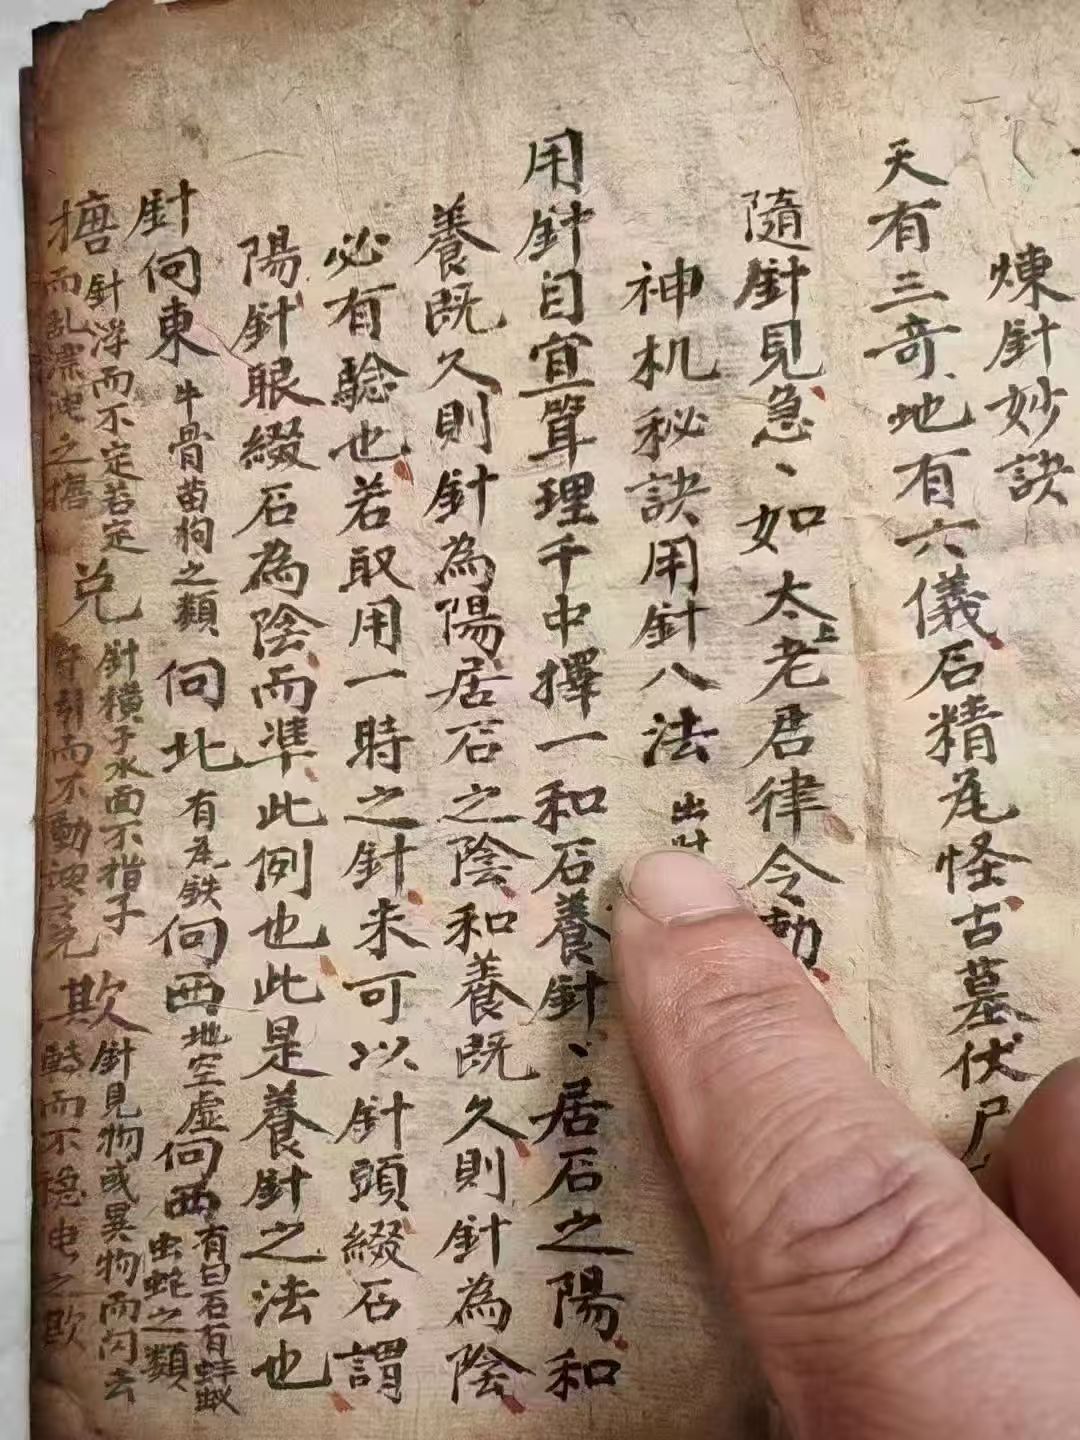 煉針妙訣
天有三奇地有六儀石精尨怪古墓伏尸
隨針見急、如太上老君律令勅
神机秘訣用針八法 出
用針目宜算理千中擇一和石養針、居石之陽和
養既久則針為陽居石之陰和養既久則針為陰
必有驗也若取用一時之針未可以針頭綴石謂
陽針眼綴石為陰而準此例也此是養針之法也
針向東 牛骨苗狗之類 向北 有鉄 向西 地空虛 向西 有白石有蚁 虫蛇之類
針浮而不定若定 兌 針橫于水面不指子 欺 針見物或異物而闪去
而乱之 引而不動 而不穩